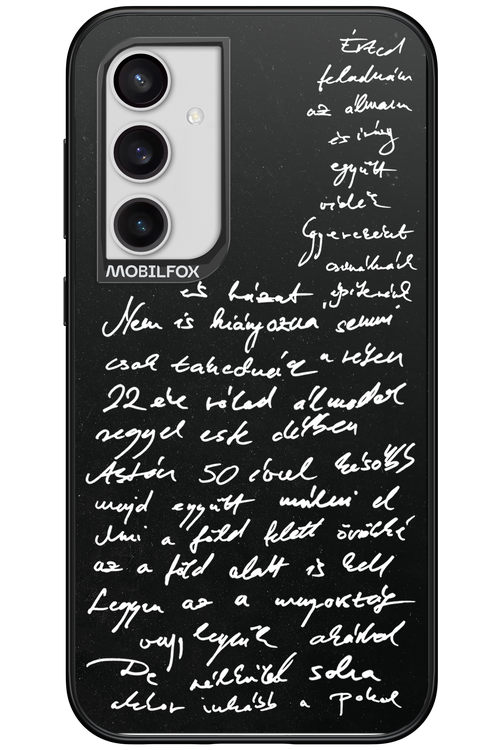 Érted
feladnám
az álmaim
és irány
együtt
vidék
Gyerekeket
csinálnánk
és házat építenénk
Nem is hiányozna semmi
csak takednénk a réten
22 éve rólad álmodok
reggel este délben
Aztán 50 évvel később
majd együtt múlni el
Ami a föld felett örökké
az a föld alatt is kell
Legyen az a mennyország
vagy legyünk akárhol
De nélküled soha
akkor inkább a pokol
MOBILFOX